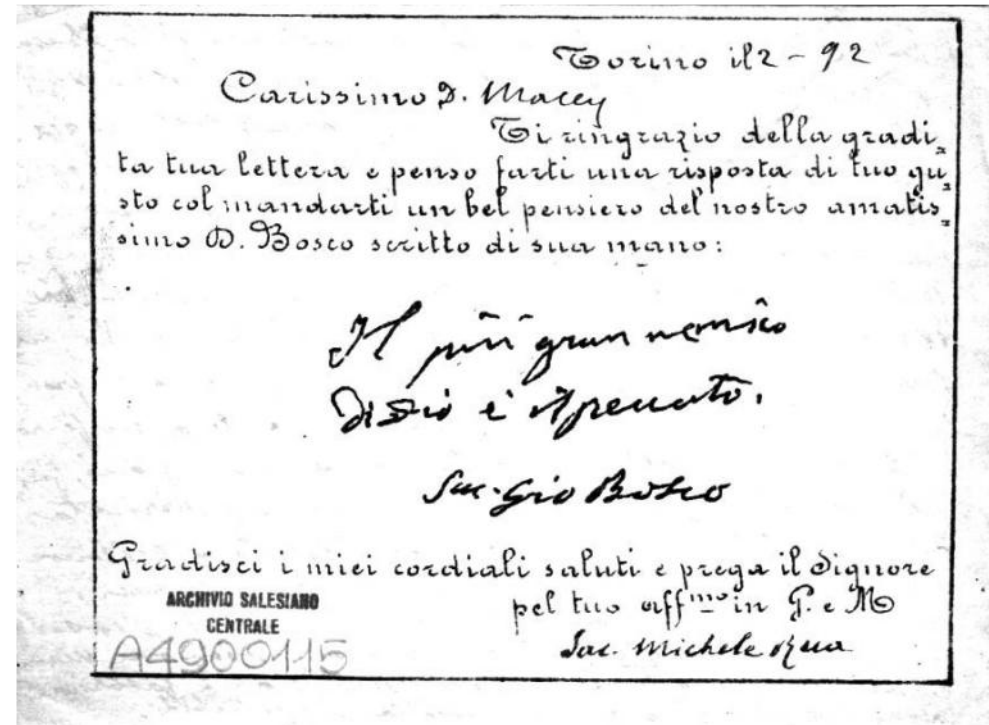 Torino il 2 - 92
Carissimo D. Macey
Ti ringrazio della gradi=
ta tua lettera e penso farti una risposta di tuo gu=
sto col mandarti un bel pensiero del nostro amatis=
simo D. Bosco scritto di sua mano:
Il più gran nemico
di Dio è il peccato.
Sac. Gio Bosco
Gradisci i miei cordiali saluti e prega il Signore
pel tuo aff.mo in G. e M
Sac. Michele Rua
ARCHIVIO SALESIANO
CENTRALE
A4900115